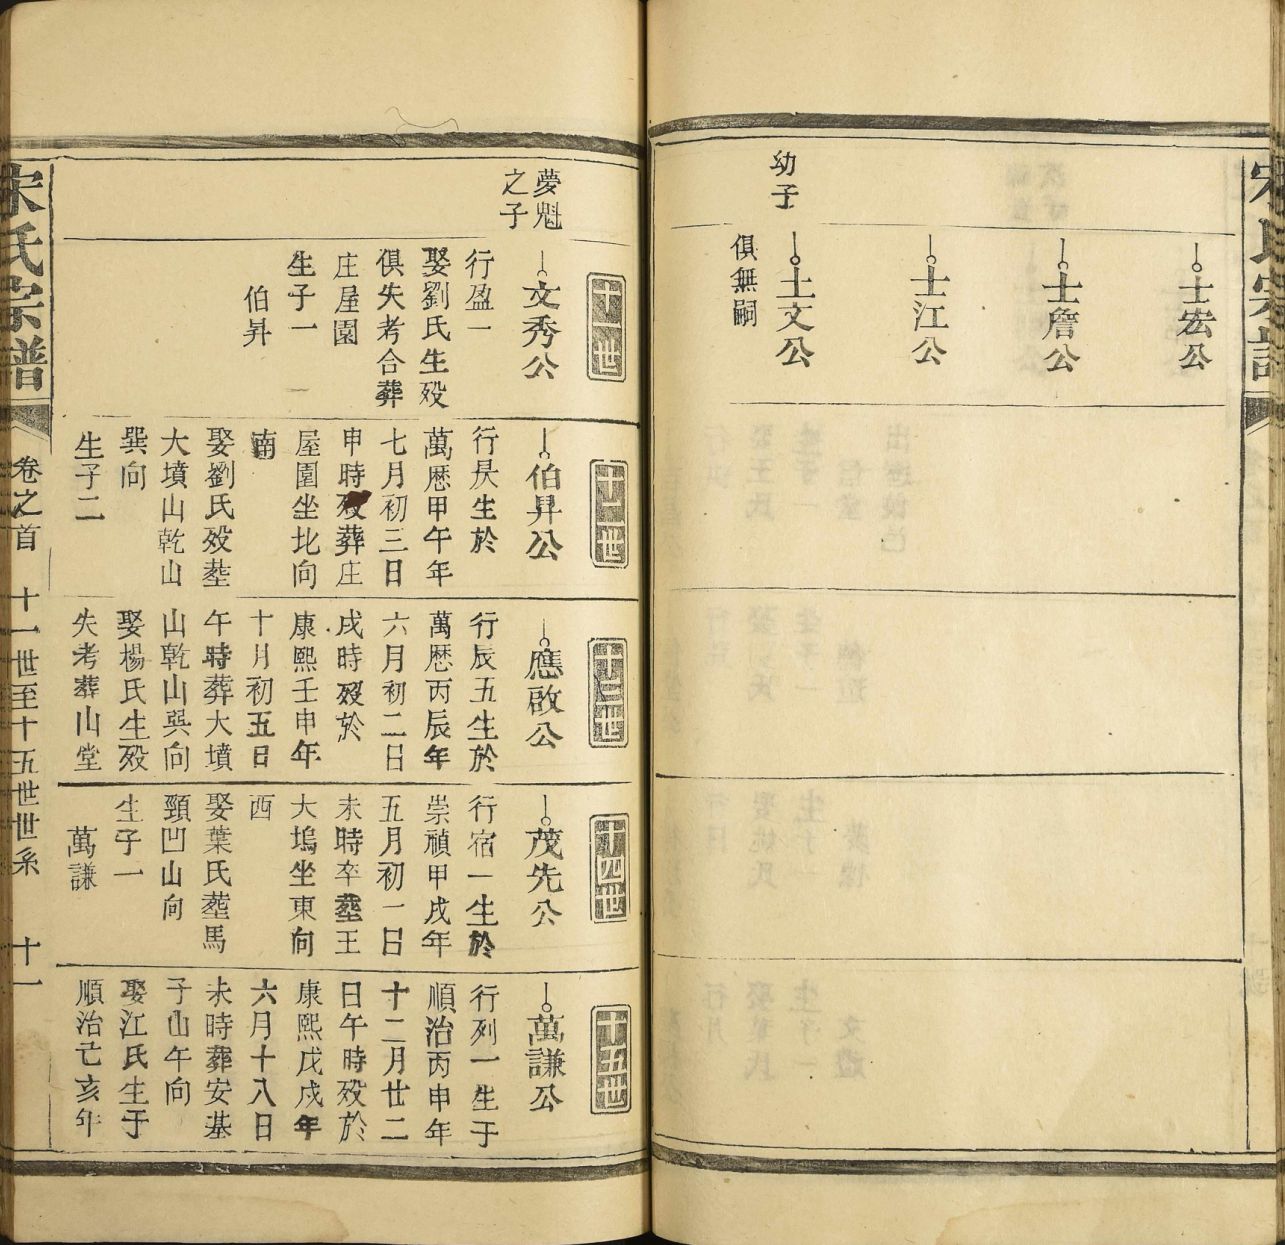 士宏公
士詹公
士江公
幼子
士文公
俱無嗣
宋氏宗譜
卷之首
十一世至十五世世系
十一
十一世
夢魁
之子
文秀公
行盈一
娶劉氏生歿
俱失考合葬
庄屋園
生子一
伯昇
十二世
伯昇公
行昃生於
萬歷甲午年
七月初三日
申時歿葬庄
屋園坐北向
南
娶劉氏歿塟
大墳山乾山
巽向
生子二
十三世
應啟公
行辰五生於
萬歷丙辰年
六月初二日
戌時歿於
康熙壬申年
十月初五日
午時葬大墳
山乾山巽向
娶楊氏生歿
失考葬山堂
十四世
茂先公
行宿一生於
崇禎甲戌年
五月初一日
未時卒塟王
大塢坐東向
西
娶葉氏塟馬
頸凹山向
生子一
萬謙
十五世
萬謙公
行列一生于
順治丙申年
十二月廿二
日午時歿於
康熙戊戌年
六月十八日
未時葬安基
子山午向
娶江氏生于
順治亡亥年